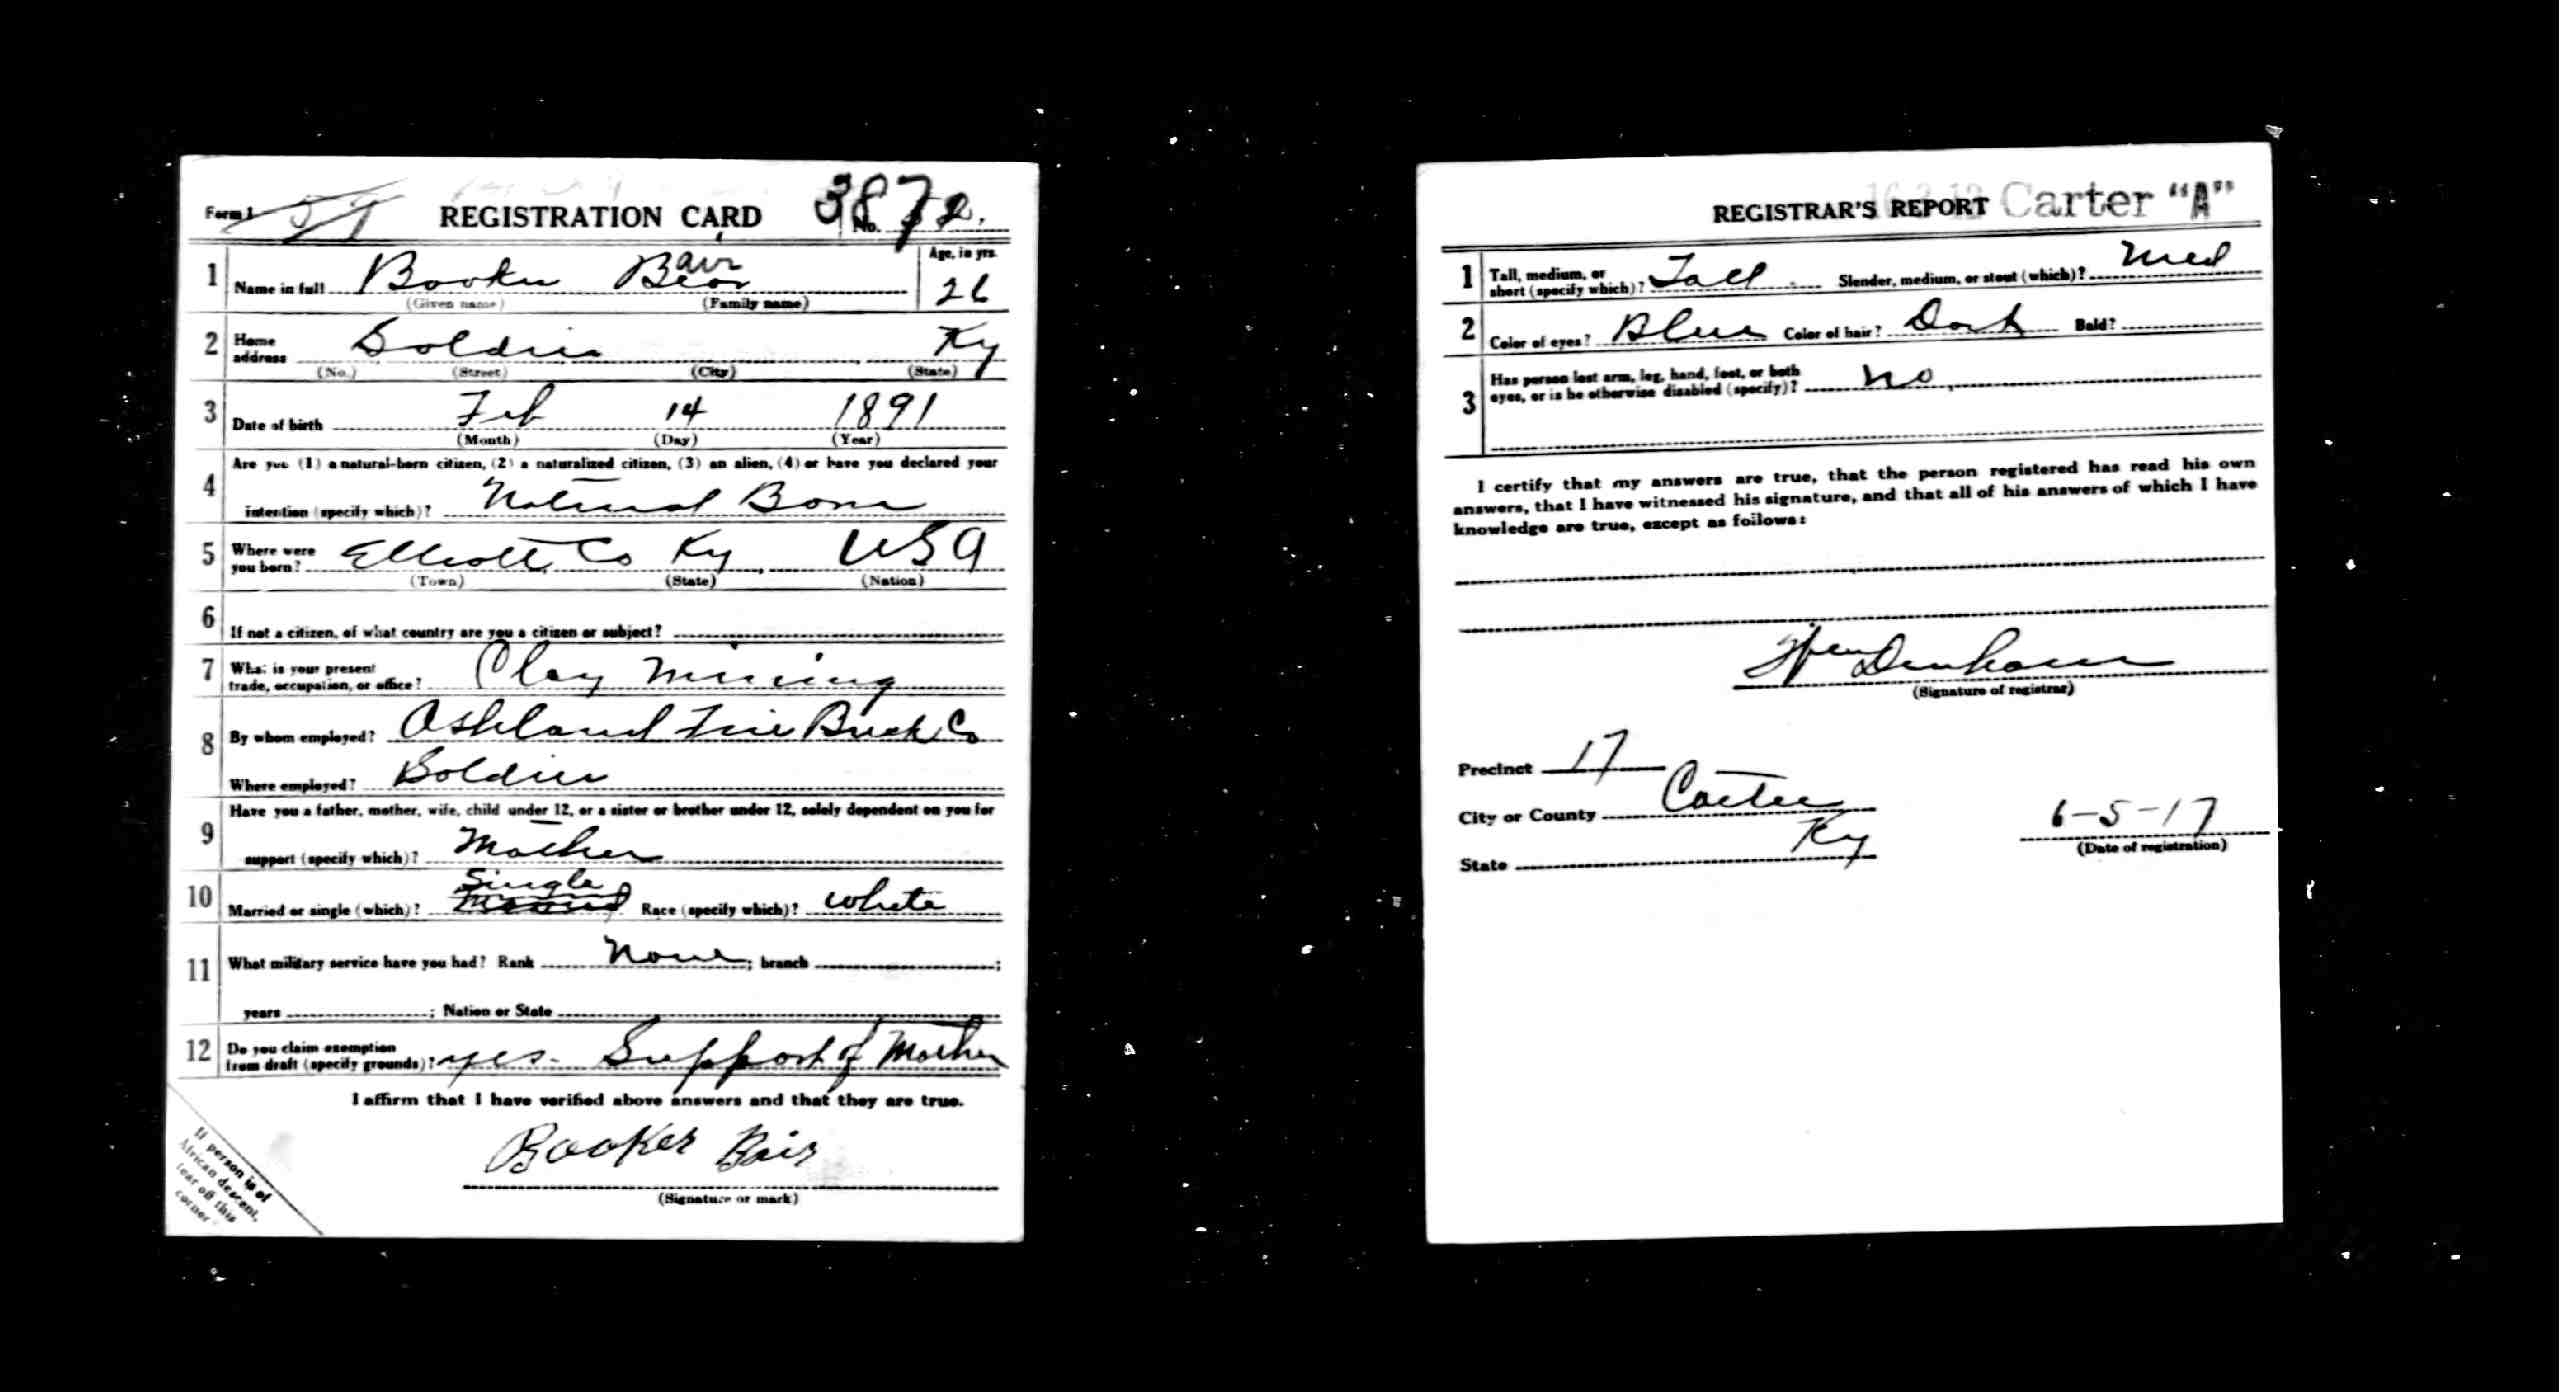 Form 1 REGISTRATION CARD No. 3872.
1 Name in full Booker Bair Age, in yrs. 26
(Given name) (Family name)
2 Home address Soldier Ky
(No.) (Street) (City) (State)
3 Date of birth Feb 14 1891
(Month) (Day) (Year)
4 Are you (1) a natural-born citizen, (2) a naturalized citizen, (3) an alien, (4) or have you declared your
intention (specify which)? Natural Born
5 Where were you born? Elliott Co Ky USA
(Town) (State) (Nation)
6 If not a citizen, of what country are you a citizen or subject?
7 What is your present trade, occupation, or office? Clay Mining
8 By whom employed? Ashland Fire Brick Co
Where employed? Soldier
9 Have you a father, mother, wife, child under 12, or a sister or brother under 12, solely dependent on you for
support (specify which)? Mother
10 Married or single (which)? Single Race (specify which)? White
11 What military service have you had? Rank None; branch ;
years ; Nation or State
12 Do you claim exemption from draft (specify grounds)? yes - Support of Mother
I affirm that I have verified above answers and that they are true.
Booker Bair
(Signature or mark)
If person is of
African descent,
tear off this
corner
REGISTRAR'S REPORT Carter "A"
1 Tall, medium, or short (specify which)? Tall Slender, medium, or stout (which)? Med
2 Color of eyes? Blue Color of hair? Dark Bald?
3 Has person lost arm, leg, hand, foot, or both
eyes, or is he otherwise disabled (specify)? No
I certify that my answers are true, that the person registered has read his own
answers, that I have witnessed his signature, and that all of his answers of which I have
knowledge are true, except as follows:
(Signature of registrar)
Precinct 17
City or County Carter
State Ky
6-5-17
(Date of registration)